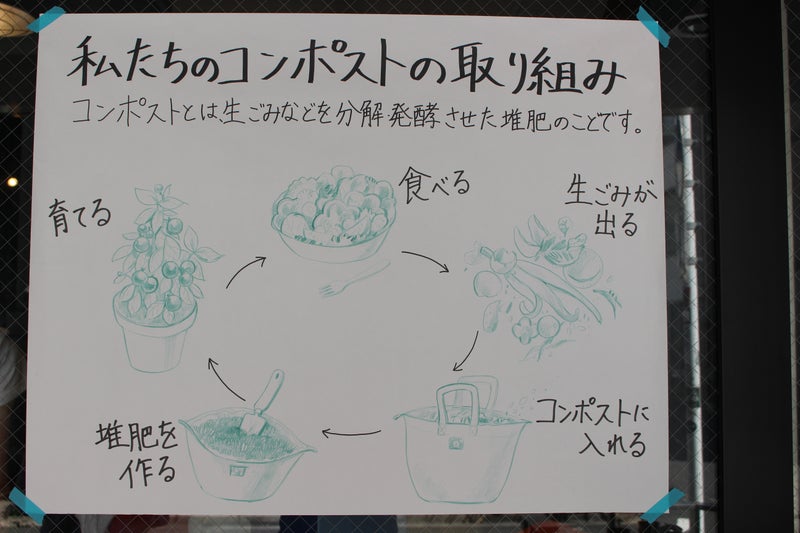 私たちのコンポストの取り組み
コンポストとは、生ごみなどを分解・発酵させた堆肥のことです。
食べる
生ごみが
出る
コンポストに
入れる
堆肥を
作る
育てる